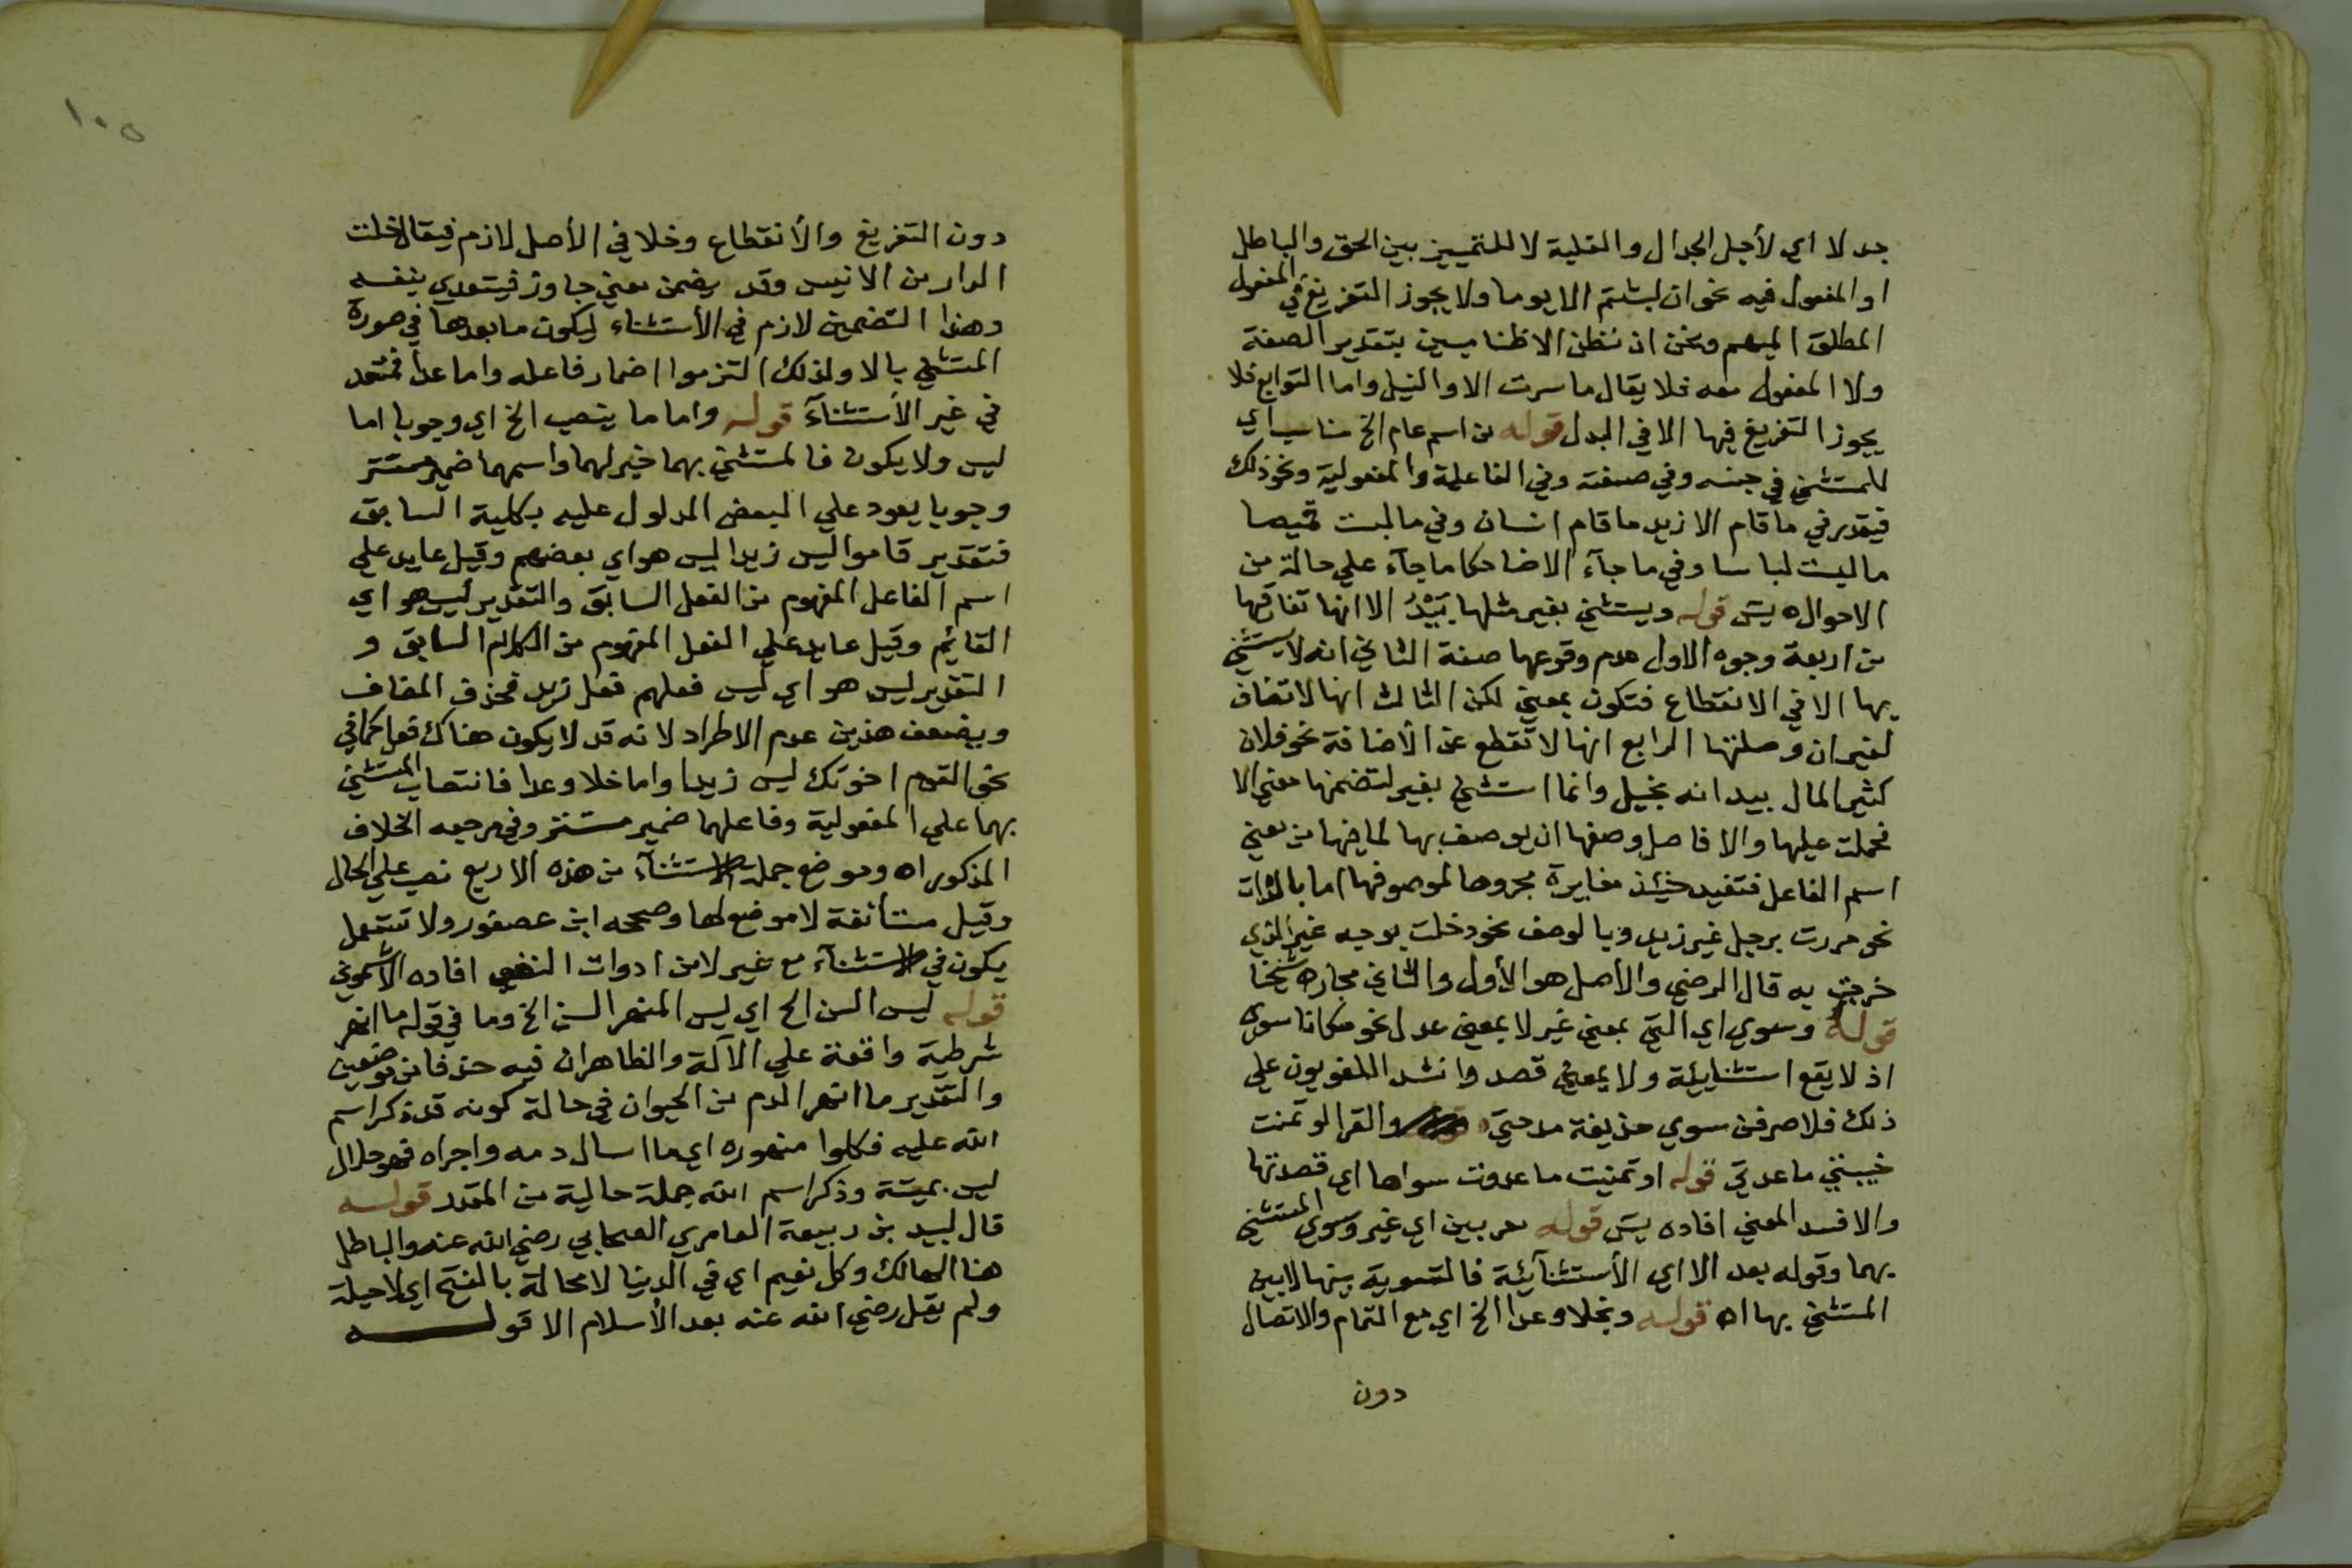 جدلا اي لأجل الجدال والغلبة لا للتمييز بين الحق والباطل
او المفعول فيه نحو ان لبثتم الا يوما ولا يجوز التفريغ في المفعول
المطلق المبهم ونحن ان نظن الا ظنا مبين بتقدير الصفة
ولا المفعول معه فلا يقال ما سرت الا والنيل واما التوابع فلا
يجوز التفريغ فيها الا في البدل قوله من اسم عام الخ مناسب اي
للمستثني في جنسه وفي صفته وفي الفاعلية والمفعولية ونحو ذلك
فيقدر في ما قام الا زيد ما قام انسان وفي ما لبست قميصا
ما لبست لباسا وفي ما جآء الا ضاحكا ما جآء علي حالة من
الاحوال ه يسَ قوله ويستثني بغير مثلها بَيْدُ الا انها تفارقها
من اربعة وجوه الاول عدم وقوعها صفة الثاني انه لا يستثني
بها الا في الانقطاع فتكون بمعني لكن الثالث انها لا تضاف
لغير ان وصلتها الرابع انها لا تقطع عن الأضافة نحو فلان
كثير المال بيد انه بخيل وانما استثني بغير لتضمنها معني الا
فحملت عليها والا فاصل وصفها ان يوصف بها لما فيها من معني
اسم الفاعل فتفيد حينئذ مغايرة مجرورها لموصوفها اما بالذات
نحو مررت برجل غير زيد وبالوصف نحو دخلت بوجه غير الذي
خرجت به قال الرضي والأصل هو الأول والثاني مجاز ه شيخنا
قوله وسوي اي التي بمعني غير لا بمعني عدل نحو مكانا سوي
اذ لا يقع استثنايية ولا بمعني قصد وانشد اللغويون علي
ذلك فلاصرفن سوي حذيفة مدحتي والقرا لو تمنت
خيبتني ما عديتي قوله او تمنيت ما عدوت سواها اي قصدتها
والا فسد المعني افاده يسَ قوله معربين اي غير وسوي المستثني
بهما وقوله بعد الا اي الأستثنآئية فالتسوية بينها لا بين
المستثني بها اه قوله وبخلا وعدا الخ اي مع التمام والاتصال
دون
١٠٥
دون التفريغ والأنقطاع وخلا في الأصل لازم فيقال خلت
الدار من الانيس وقد يضمن معني جاوز فيتعدي بنفسه
وهذا التضمين لازم في الأستثناء ليكون ما بعدها في صورة
المستثني بالا ولذلك التزموا اضمار فاعله واما عدا فمتعد
في غير الأستثنآء قوله واما ما ينصب الخ اي وجوبا اما
ليس ولا يكون فالمستثني بهما خبر لهما واسمهما ضمير مستتر
وجوبا يعود علي البعض المدلول عليه بكلية السابق
فتقدير قاموا ليس زيدا ليس هو اي بعضهم وقيل عايد علي
اسم الفاعل المفهوم من الفعل السابق والتقدير ليس هو اي
القائم وقيل عايد علي الفعل المفهوم من الكلام السابق و
التقدير ليس هو اي ليس فعلهم فعل زيد فحذف المضاف
ويضعف هذين عدم الاطراد لانه قد لا يكون هناك فعل كما في
نحو القوم اخوتك ليس زيدا واما خلا وعدا فانتصاب المستثني
بهما علي المفعولية وفاعلهما ضمير مستتر وفي مرجعه الخلاف
المذكور اه وموضع جملة الاستثنآء من هذه الاربع نصب علي الحال
وقيل مستأنفة لا موضع لها وصححه ابن عصفور ولا تستعمل
يكون في الاستثنآء مع غير لا من ادوات النفي افاده الأشموني
قوله ليس السن الخ اي ليس المنهر السن الخ وما في قوله ما انهر
شرطية واقعة علي الآلة والظاهر ان فيه حذفا من موضعين
والتقدير ما انهر الدم من الحيوان في حالة كونه قد ذكر اسم
الله عليه فكلوا منهوره اي ما اسال دمه واجراه فهو حلال
ليس بميتة وذكر اسم الله جملة حالية من المقدر قوله
قال لبيد بن ربيعة العامري الصحابي رضي الله عنه والباطل
هنا الهالك وكل نعيم اي في الدينا لا محالة بالفتح اي لا حيلة
ولم يقل رضي الله عنه بعد الأسلام الا قوله